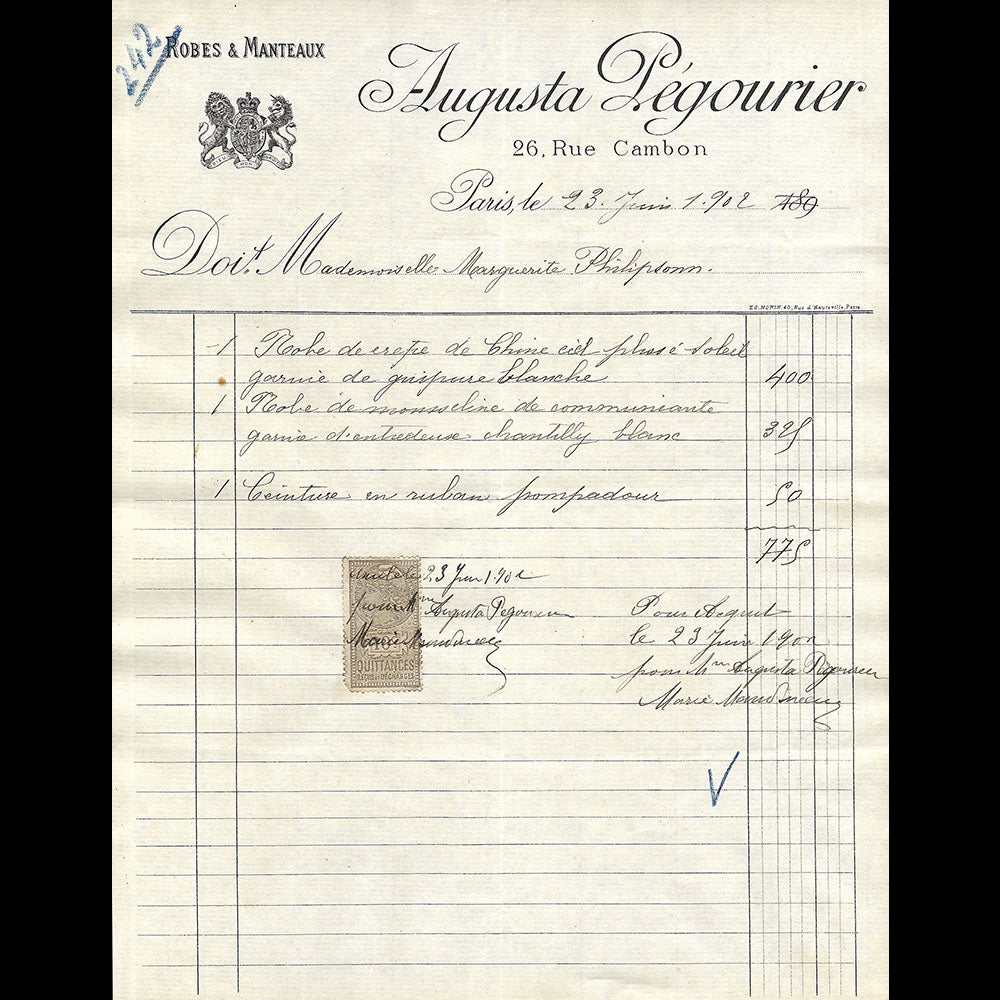 242
ROBES & MANTEAUX
Augusta Pégourier
26, Rue Cambon
DIEU ET MON DROIT
Paris, le 23 Juin 1.902 189
Doit Mademoiselle Marguerite Philipsonn.
ED. MORIN, 40, Rue d'Hauteville, Paris
1 Robe de crêpe de Chine ciel plissé soleil
garnie de guipure blanche 400
1 Robe de mousseline de communiante
garnie d'entredeuse chantilly blanc 325
1 Ceinture en ruban pompadour 50
775
le 23 Juin 1.902
pour Mme Augusta Pegourier
Marie
QUITTANCES
REÇUS ET DÉCHARGES
Pour Acquit
le 23 Juin 1902
pour Mme Augusta Pegourier
Marie